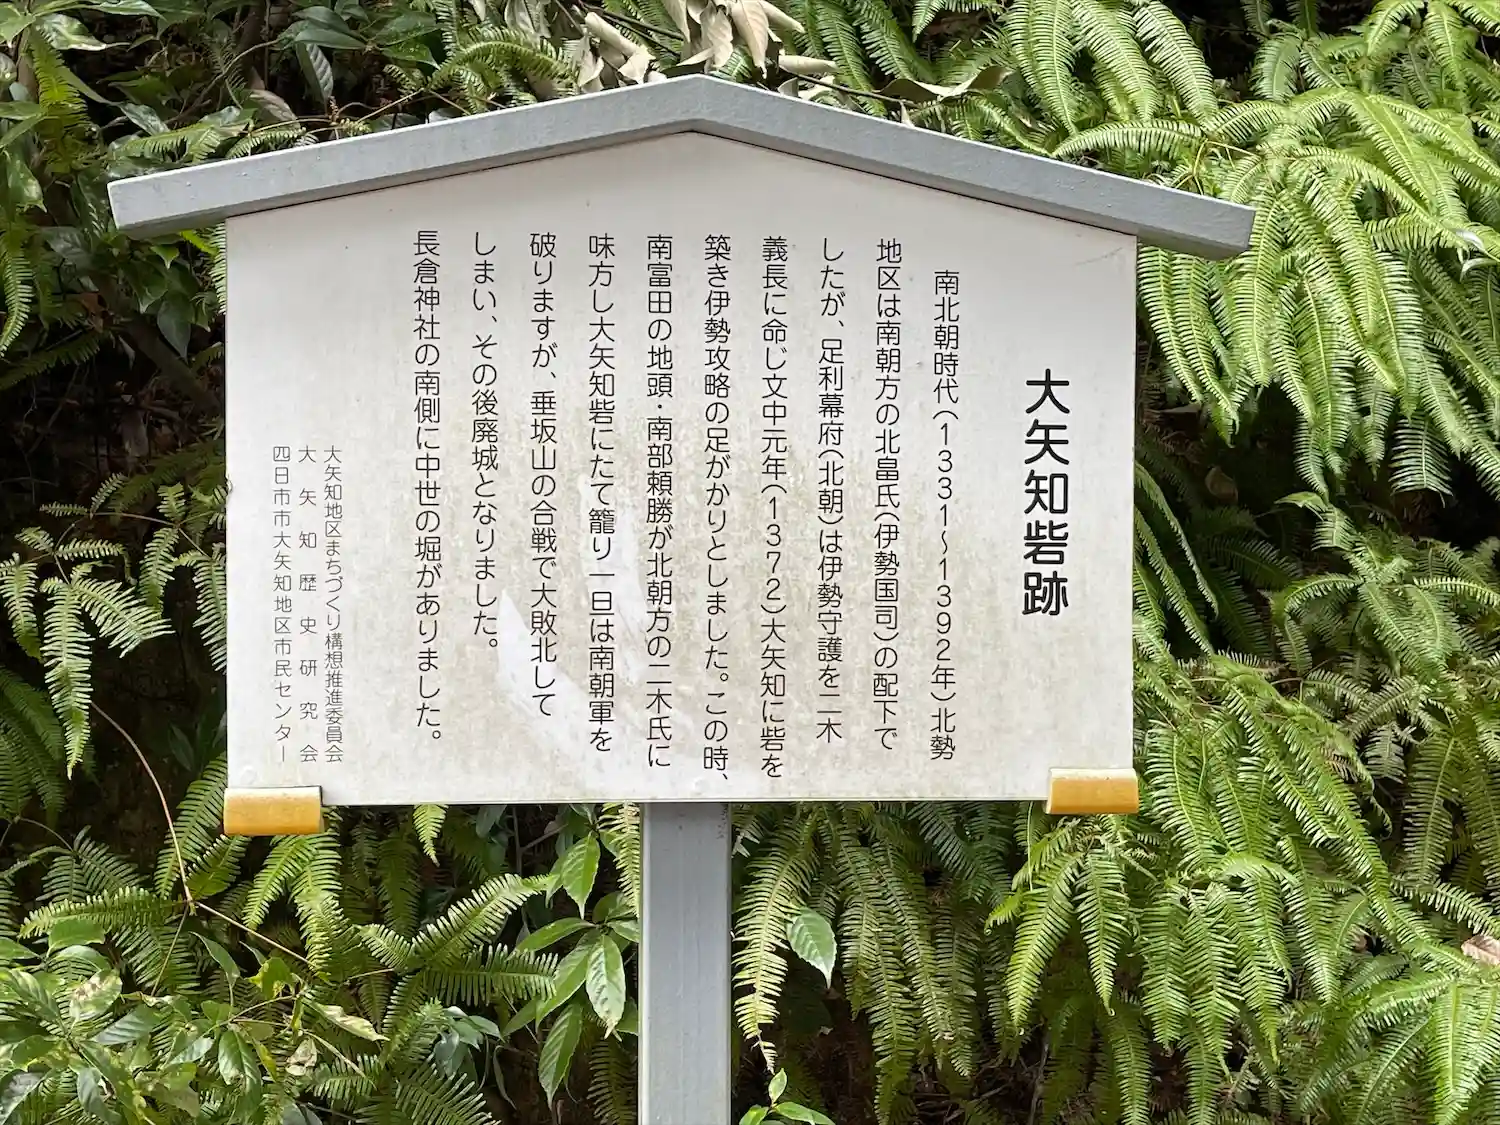 大矢知砦跡
南北朝時代(1331~1392年)北勢
地区は南朝方の北畠氏(伊勢国司)の配下で
したが、足利幕府(北朝)は伊勢守護を二木
義長に命じ文中元年(1372)大矢知に砦を
築き伊勢攻略の足がかりとしました。この時、
南富田の地頭・南部頼勝が北朝方の二木氏に
味方し大矢知砦にたて籠り一旦は南朝軍を
破りますが、垂坂山の合戦で大敗北して
しまい、その後廃城となりました。
長倉神社の南側に中世の堀がありました。
大矢知地区まちづくり構想推進委員会
大矢知歴史研究会
四日市市大矢知地区市民センター